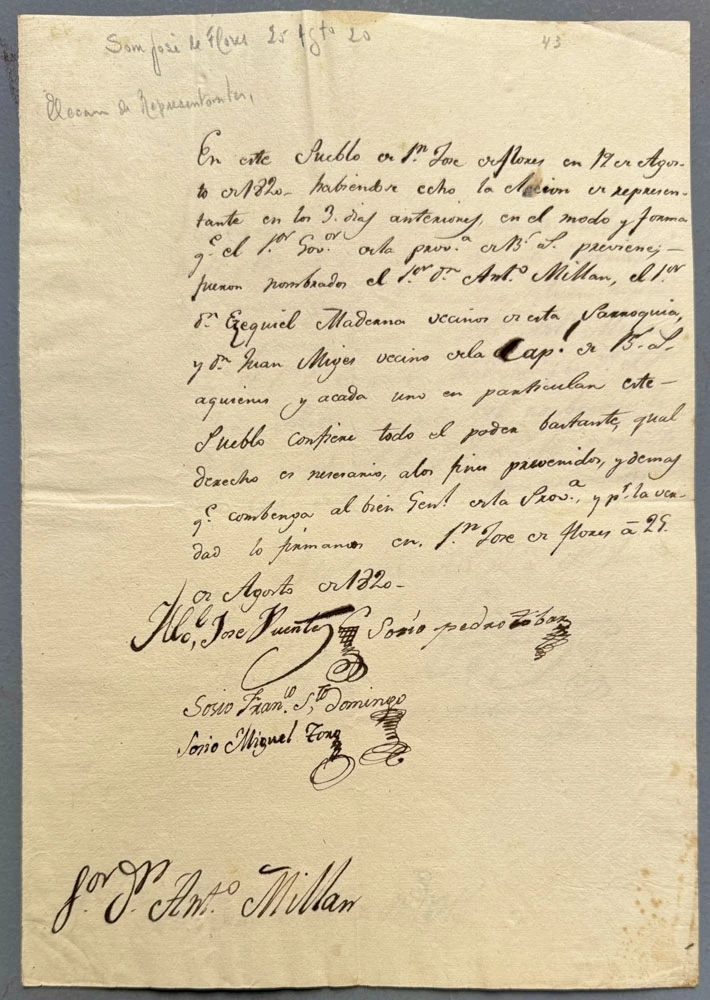 San José de Flores 25 Agto 20
43
Eleccion de Representantes,
En este Pueblo de Sn. Jose de flores en 19 de Agos-
to de 1820- habiendose echo la eleccion de represen-
tante en los 3. dias anteriores, en el modo y forma
qe. el Sor. Govor. de la prova. de Bs. As. previene;-
fueron nombrados el Sor. Dn. Anto. Millan, el Sor
Dn. Ezequiel Maderna vecinos de esta Parroquia,
y Dn. Juan Miges vecino de la Capl. de Bs. As-
aquienes y acada uno en particular este-
Pueblo confiere todo el poder bastante, qual
derecho es nesesario, alos fines prevenidos, y demas
qe. combenga al bien Genl. de la Prova., y pr. la ver-
dad lo firmamos en. Sn. Jose de flores á 25.
de Agosto de 1820-
Alce. Jose Puente Sosio pedro tobar
Sosio Franco. Sto. Domingo
Sosio Miguel
Sor. Dn. Anto. Millan